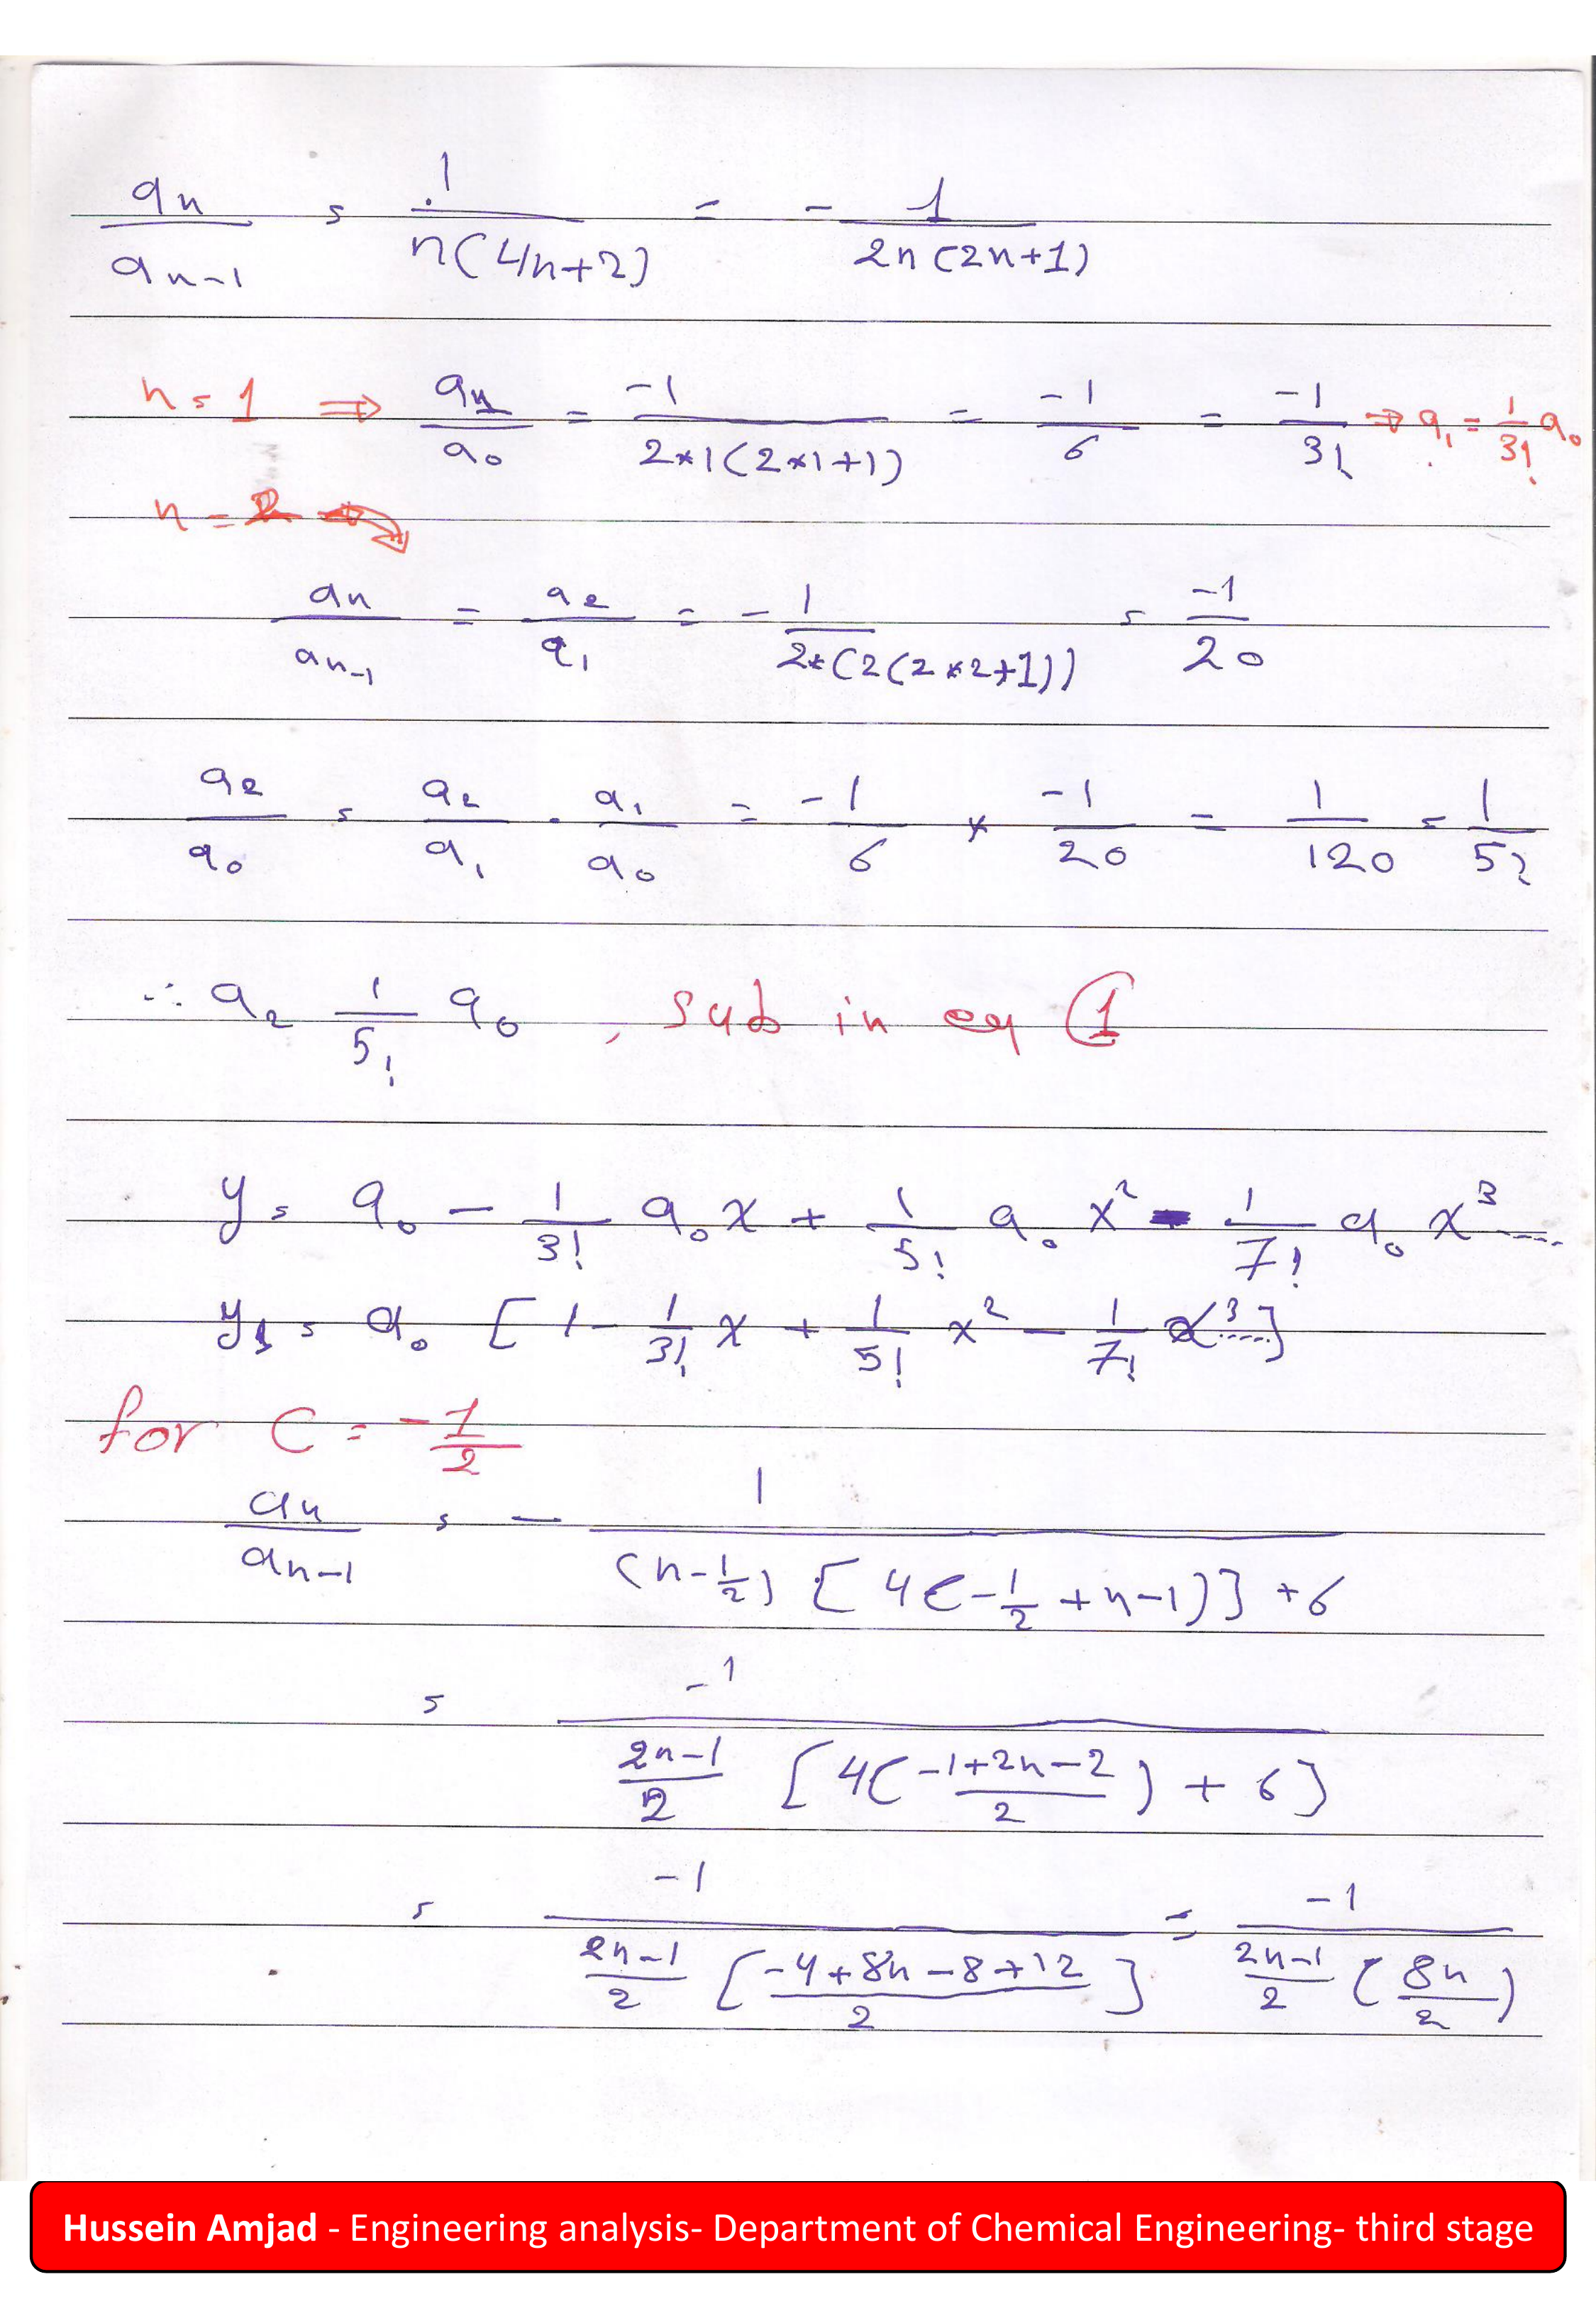 an/an-1 = 1/n(4n+2) = - 1/2n(2n+1)
n=1 ⇒ a1/a0 = -1/2*1(2*1+1) = -1/6 = -1/3! ⇒ a1 = 1/3! a0
n=2 →
an/an-1 = a2/a1 = - 1/2*(2(2*2+1)) = -1/20
a2/a0 = a2/a1 . a1/a0 = -1/6 * -1/20 = 1/120 = 1/5!
∴ a2 1/5! a0 , sub in eq 1
y = a0 - 1/3! a0 x + 1/5! a0 x² - 1/7! a0 x³ ....
y1 = a0 [1 - 1/3! x + 1/5! x² - 1/7! x³ ....]
for C = -1/2
an/an-1 = - 1/(n-1/2) [4(-1/2+n-1)] +6
= -1/(2n-1)/2 [4(-1+2n-2/2) + 6]
= -1/(2n-1)/2 [-4+8n-8+12/2] = -1/(2n-1)/2 (8n/2)
Hussein Amjad - Engineering analysis- Department of Chemical Engineering- third stage